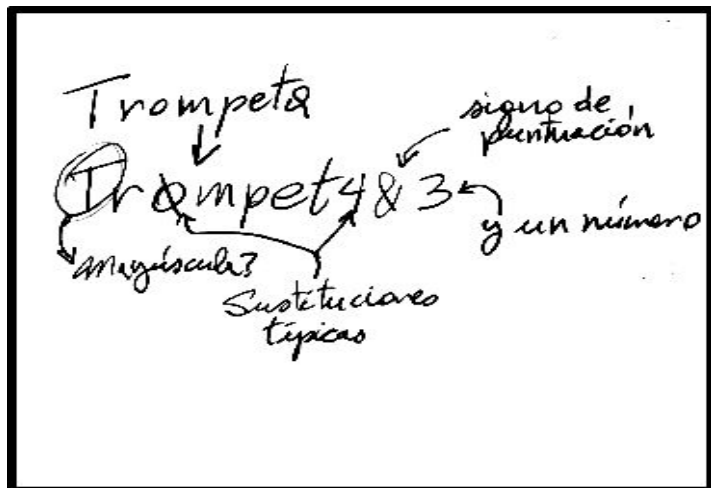 Trompeta
signo de
puntuación
Tr0mpet4&3
y un número
mayúscula?
Sustituciones
típicas